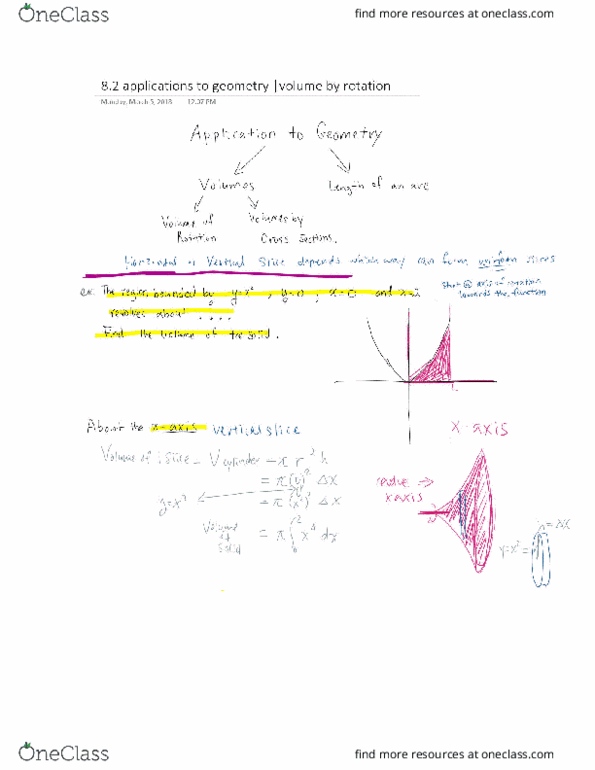 OneClass
find more resources at oneclass.com
8.2 applications to geometry |volume by rotation
Monday, March 5, 2018 12:07 PM
Application to Geometry
Volumes
Length of an arc
Volume of Rotation
Volumes by Cross Sections.
Horizontal or Vertical Slice depends which way can form uniform slices
Start @ axis of rotation
towards the function
ex. The region bounded by y=x², y=0, x=0 and x=2
revolves about . . . .
Find the volume of the solid.
x-axis
About the x-axis vertical slice
Volume of 1 Slice = V cylinder = π r² h
= π(y)² Δx
y=x²
= π(x²)² Δx
Volume of Solid = π ∫ x⁴ dx
x-axis
y=x² =
=Δx
OneClass
find more resources at oneclass.com